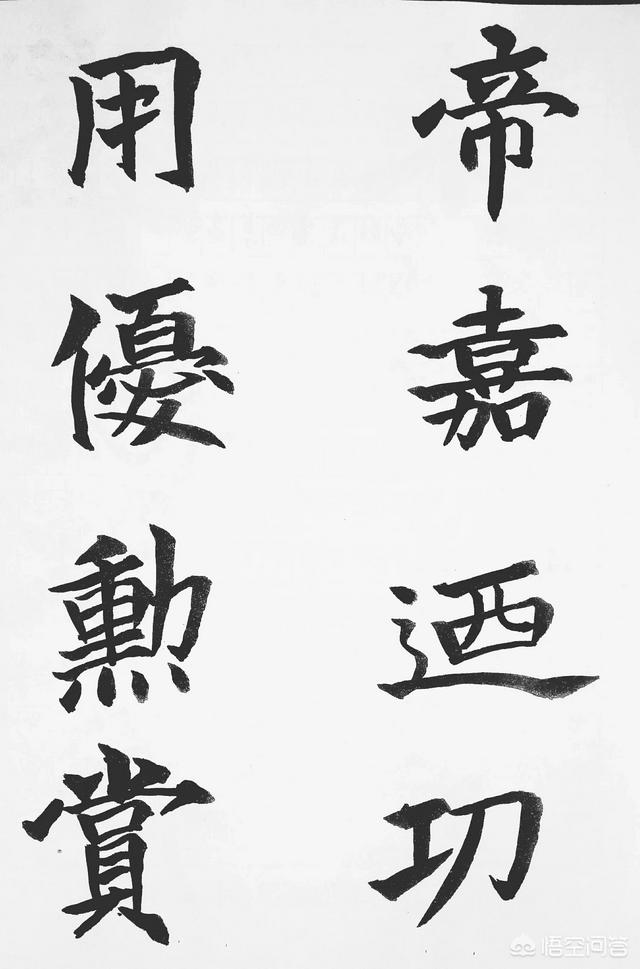 帝嘉迺功
用優勲賞
悟空问答